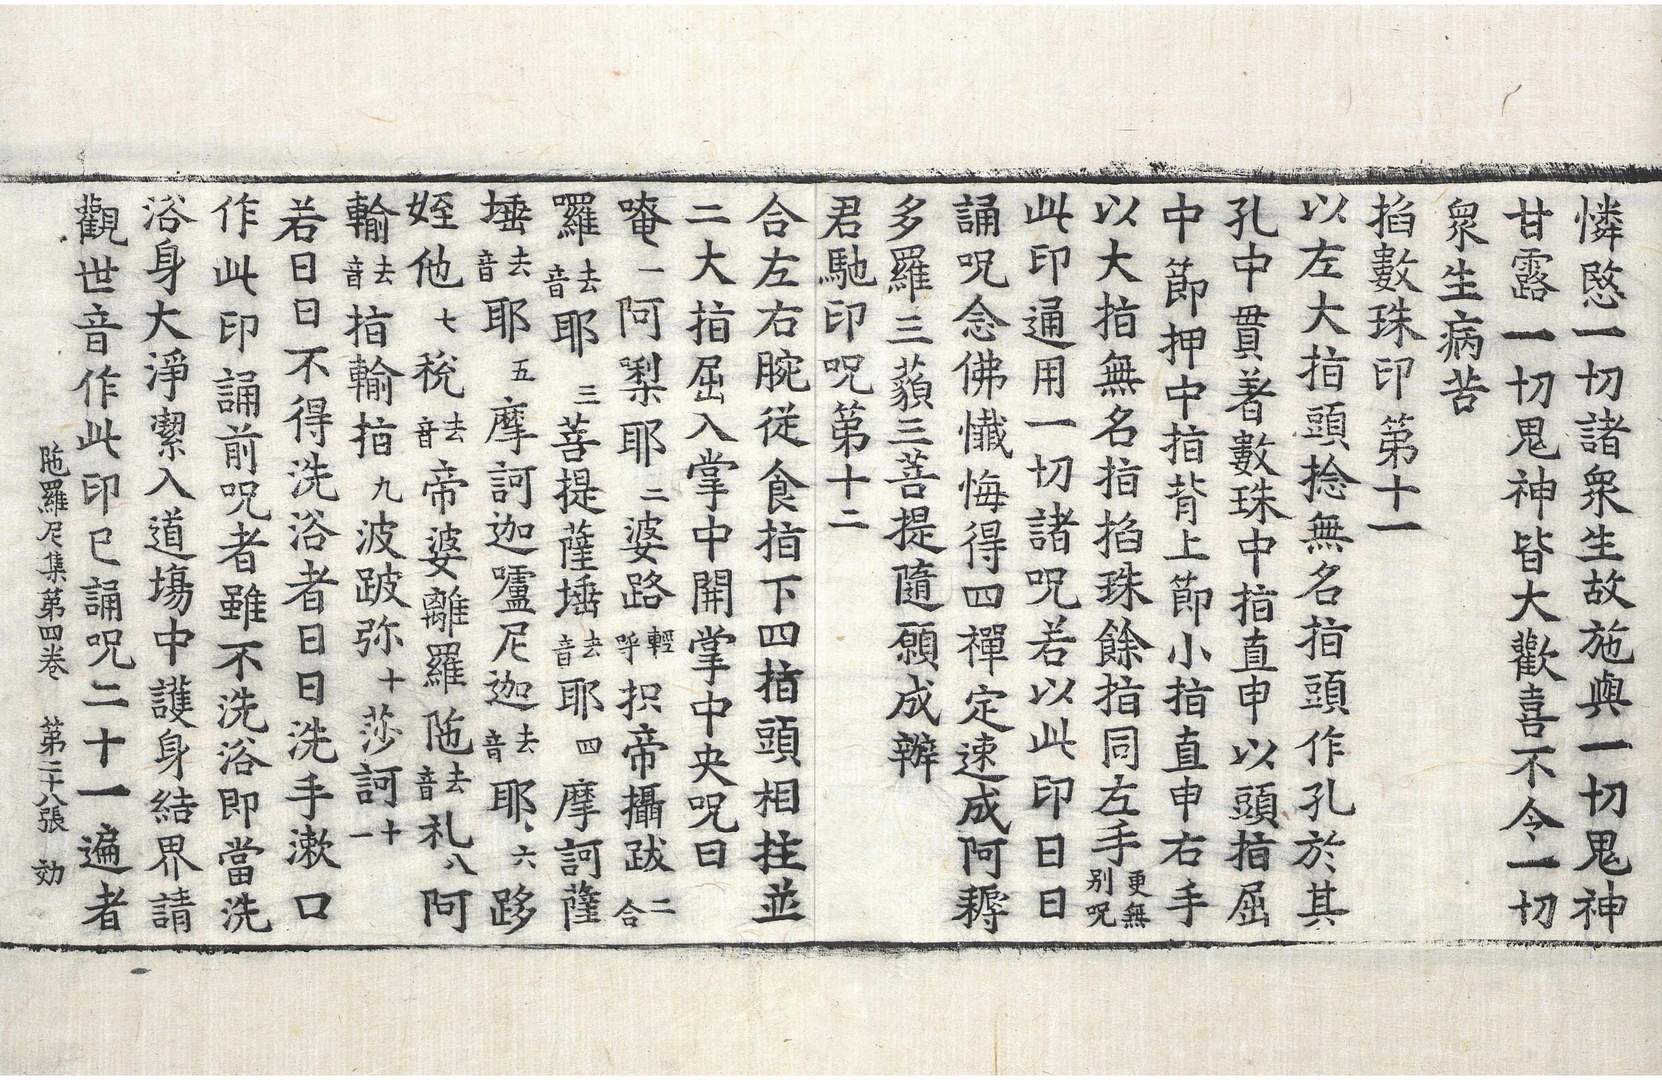 憐愍一切諸衆生故施與一切鬼神
甘露一切鬼神皆大歡喜不令一切
衆生病苦
掐數珠印第十一
以左大指頭捻無名指頭作孔於其
孔中貫著數珠中指直申以頭指屈
中節押中指背上節小指直申右手
以大指無名指掐珠餘指同左手更無別呪
此印通用一切諸呪若以此印日日
誦呪念佛懺悔得四禪定速成阿耨
多羅三藐三菩提隨願成辦
君馳印呪第十二
合左右腕從食指下四指頭相拄並
二大指屈入掌中開掌中央呪曰
唵一阿㗚耶二婆路輕呼枳帝攝跋二合
囉去音耶三菩提薩埵去音耶四摩訶薩
埵去音耶五摩訶迦嚧尼迦去音耶六跢
姪他七稅去音帝婆離羅陁去音札八阿
輸去音指輸指九波跛弥十莎訶十一
若日日不得洗浴者日日洗手漱口
作此印誦前呪者雖不洗浴即當洗
浴身大淨潔入道塲中護身結界請
觀世音作此印已誦呪二十一遍者
陁羅尼集第四卷 第二十八張 効